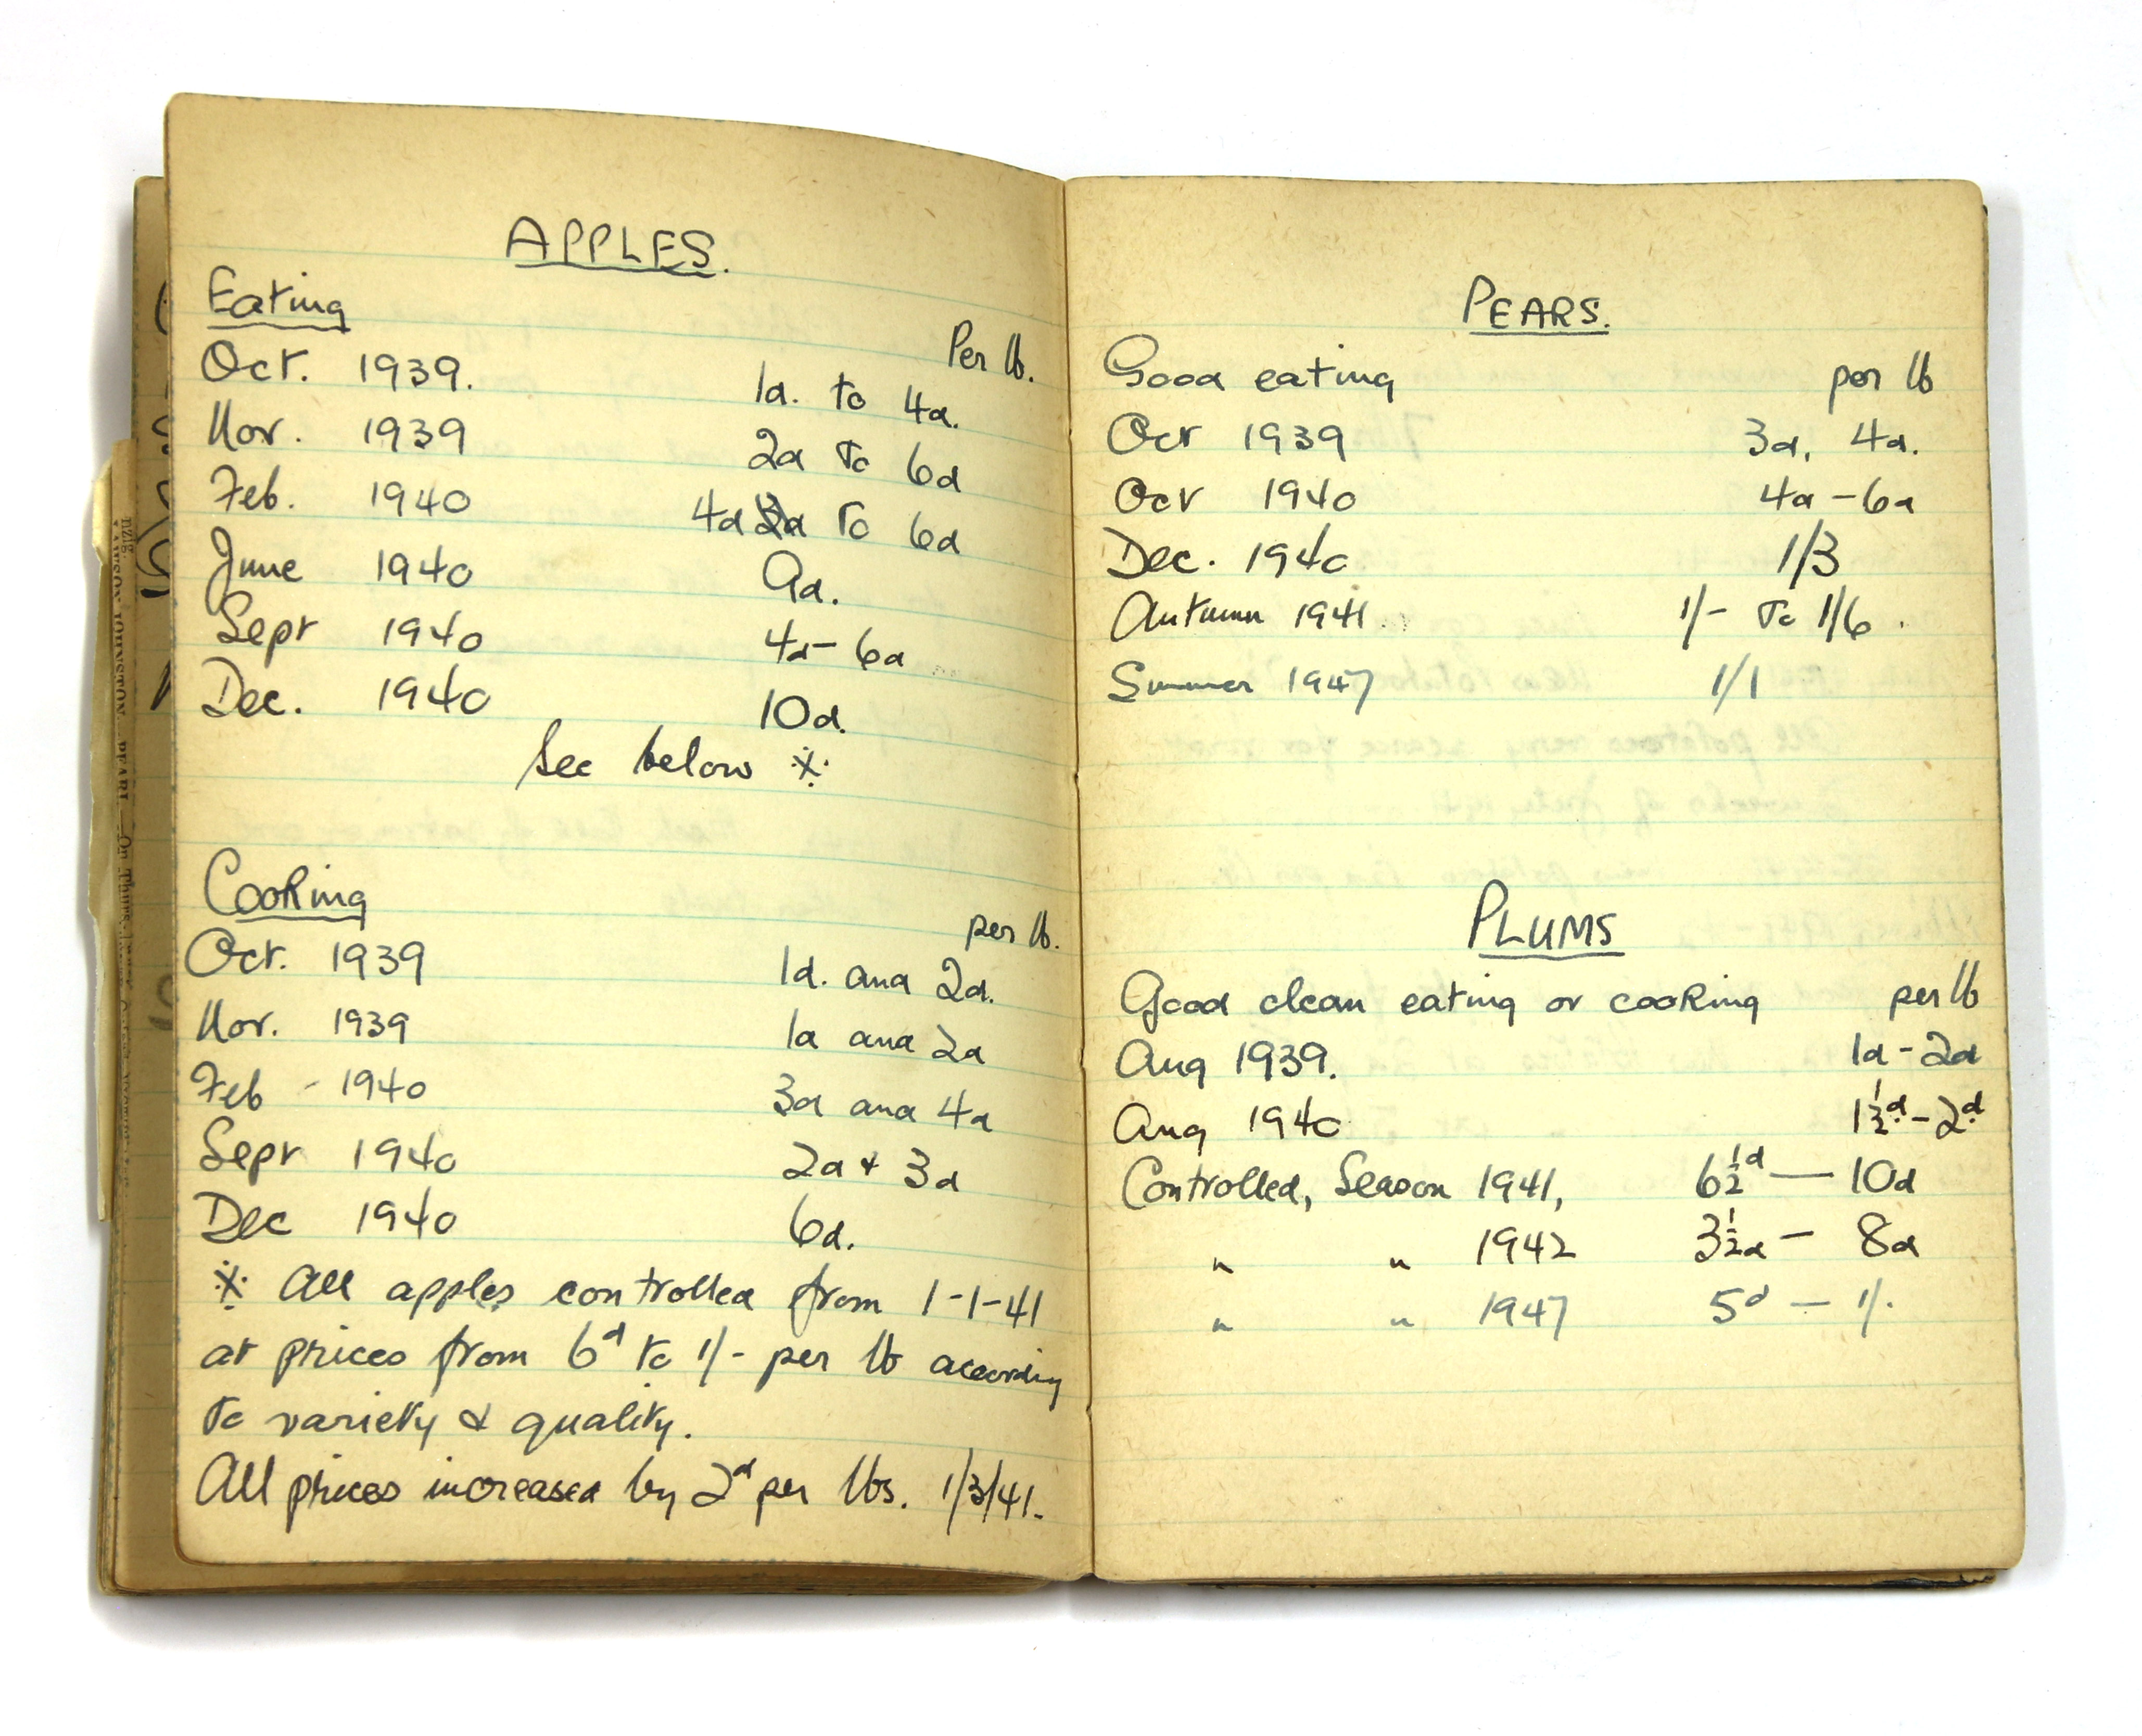 APPLES.
Eating
Per lb.
Oct. 1939. 1d. to 4d.
Nov. 1939 2d to 6d
Feb. 1940 4d 3d to 6d
June 1940 9d.
Sept 1940 4d - 6d
Dec. 1940 10d.
See below ※
Cooking
per lb.
Oct. 1939 1d. and 2d.
Nov. 1939 1d and 2d
Feb - 1940 3d and 4d
Sept 1940 2d + 3d
Dec 1940 6d.
※ All apples controlled from 1-1-41
at prices from 6d to 1/- per lb according
to variety & quality.
All prices increased by 2d per lbs. 1/3/41.
PEARS.
Good eating per lb
Oct 1939 3d, 4d.
Oct 1940 4d - 6d
Dec. 1940 1/3
Autumn 1941. 1/- to 1/6.
Summer 1947 1/1
PLUMS
Good clean eating or cooking per lb
Aug 1939. 1d - 2d
Aug 1940 1½d - 2d
Controlled, Season 1941, 6½d — 10d
" " 1942 3½d - 8d
" " 1947 5d — 1/.